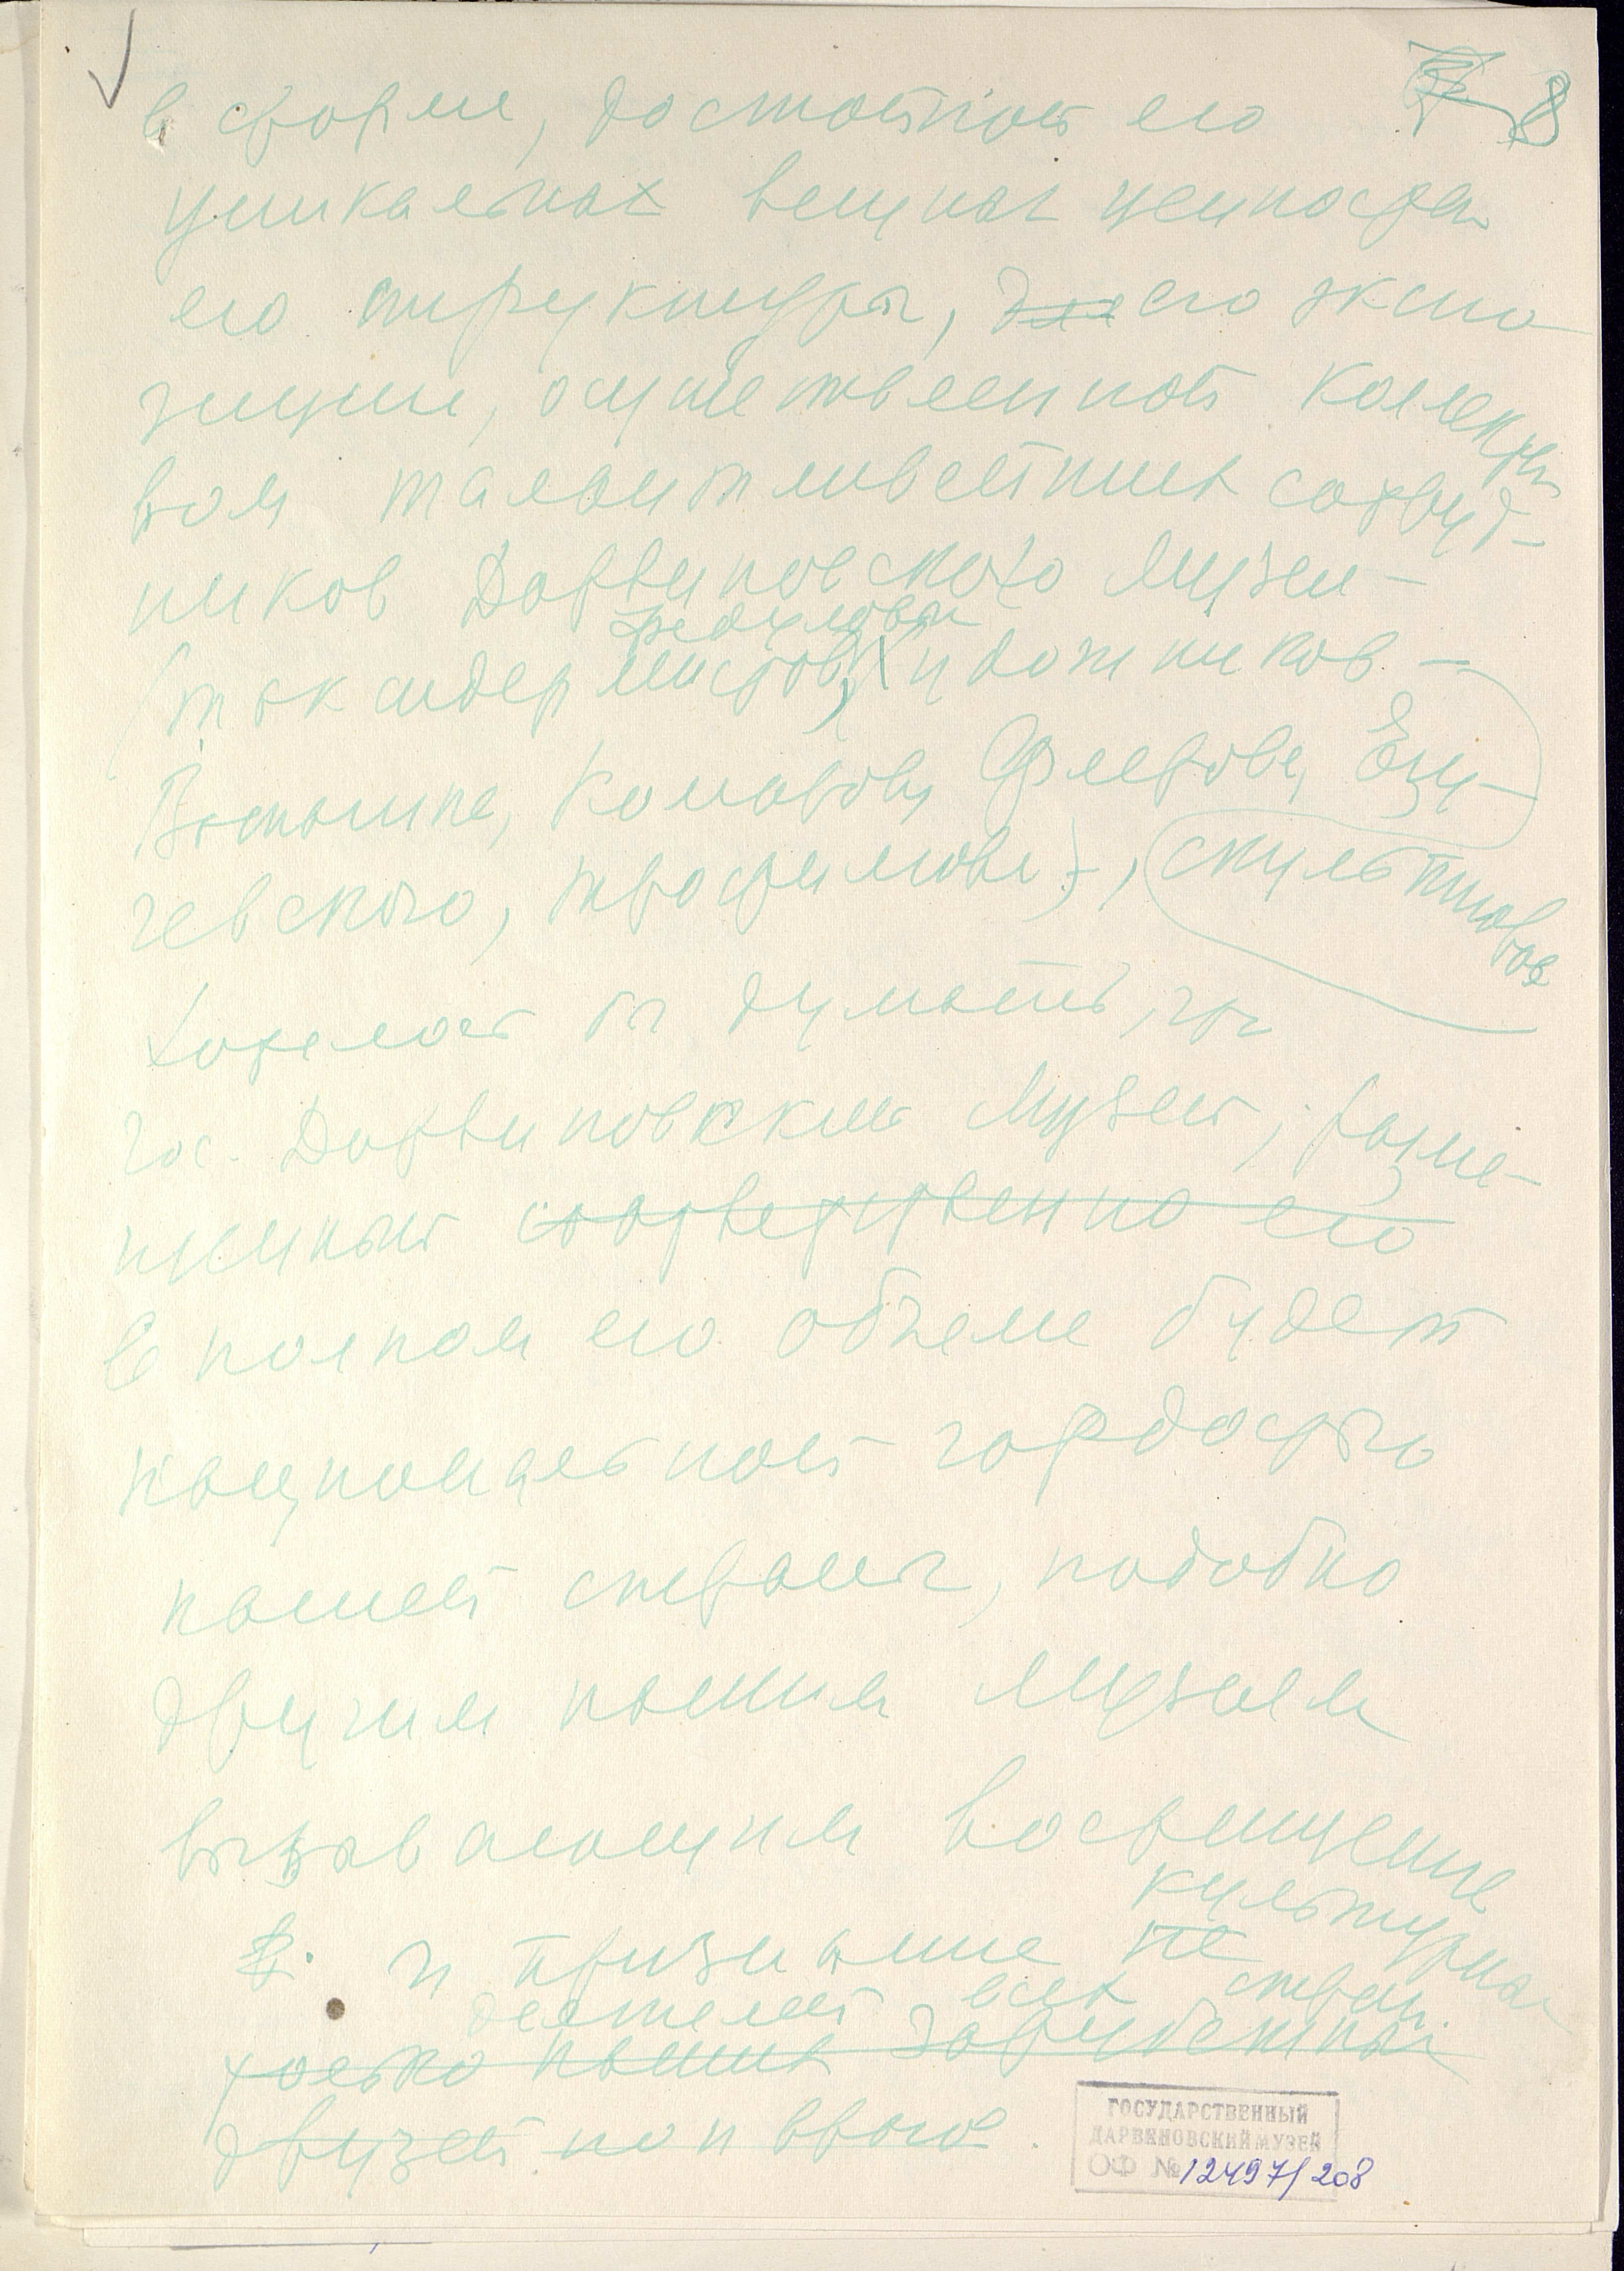 8
в форме, достойной его
уникальных вещных ценностей
его структуры, для его экспо-
зиции, осуществленной коллекти
вом талантливейших сотруд-
ников Дарвиновского Музея -
Федулова
(таксидермистов, художников -
Ватагина, Комарова, Флерова, Езу-
чевского, Трофимова), скульпторов
Хотелось бы думать, что
Гос. Дарвиновский Музей, разме-
щенный соответственно его
в полном его объеме будет
национальной гордостью
нашей страны, подобно
другим нашим музеям
вызывающим восхищение
культурных
и признание не
деятелей всех стран.
только наших зарубежных
друзей но и врагов.
ГОСУДАРСТВЕННЫЙ
ДАРВИНОВСКИЙ МУЗЕЙ
ОФ № 12497/208